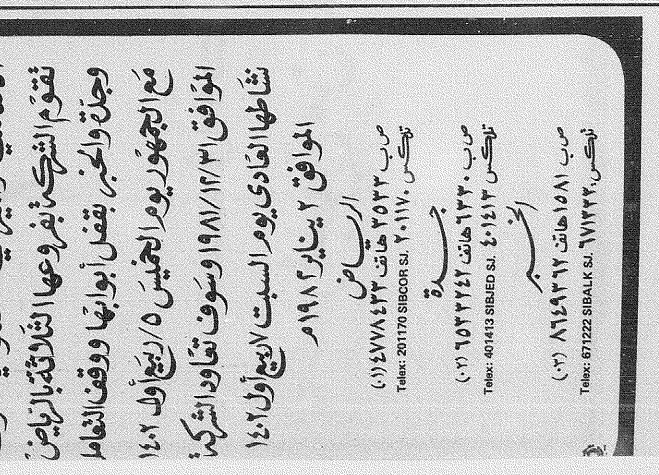 تقوم الشركة بفروعها الثلاثة بالرياض
وجدة والخبر بقفل أبوابها ووقف التعامل
مع الجمهور يوم الخميس ٥/ربيع أول ١٤٠٢
الموافق ١٩٨١/١٢/٣١ وسوف تعاود الشركة
نشاطها العادي يوم السبت ٧ ربيع أول ١٤٠٢
الموافق ٢ يناير ١٩٨٢م
الرياض
ص ب ٣٥٣٣ هاتف ٤٧٧٨٤٣٣ (٠١)
تلكس ٢٠١١٧٠ Telex: 201170 SIBCOR SJ.
جدة
ص ب ٦٣٣٠ هاتف ٦٥٣٣٢٤٢ (٠٢)
تلكس ٤٠١٤١٣ Telex: 401413 SIBJED SJ.
الخبر
ص ب ١٥٨١ هاتف ٨٦٤٩٣٦٢ (٠٣)
تلكس ٦٧١٢٢٢ Telex: 671222 SIBALK SJ.